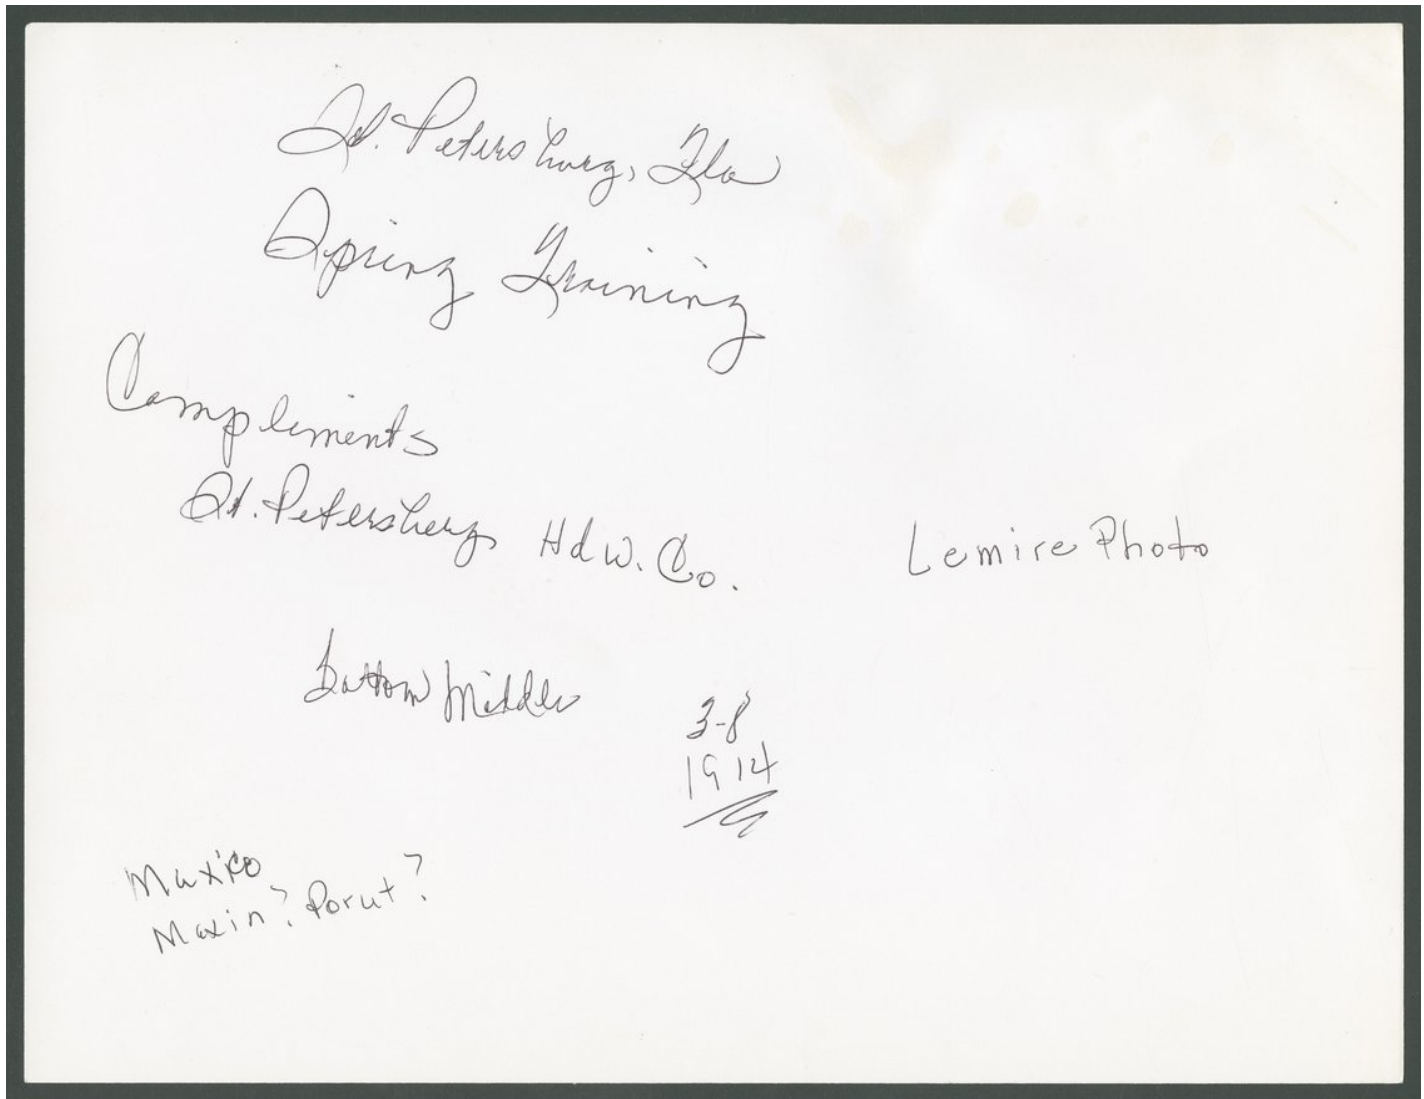 St. Petersburg, Fla
Spring Training
Compliments
St. Petersburg Hdw. Co.
Lemire Photo
Bottom Middle
3-8
1914
Maxin? Porut?